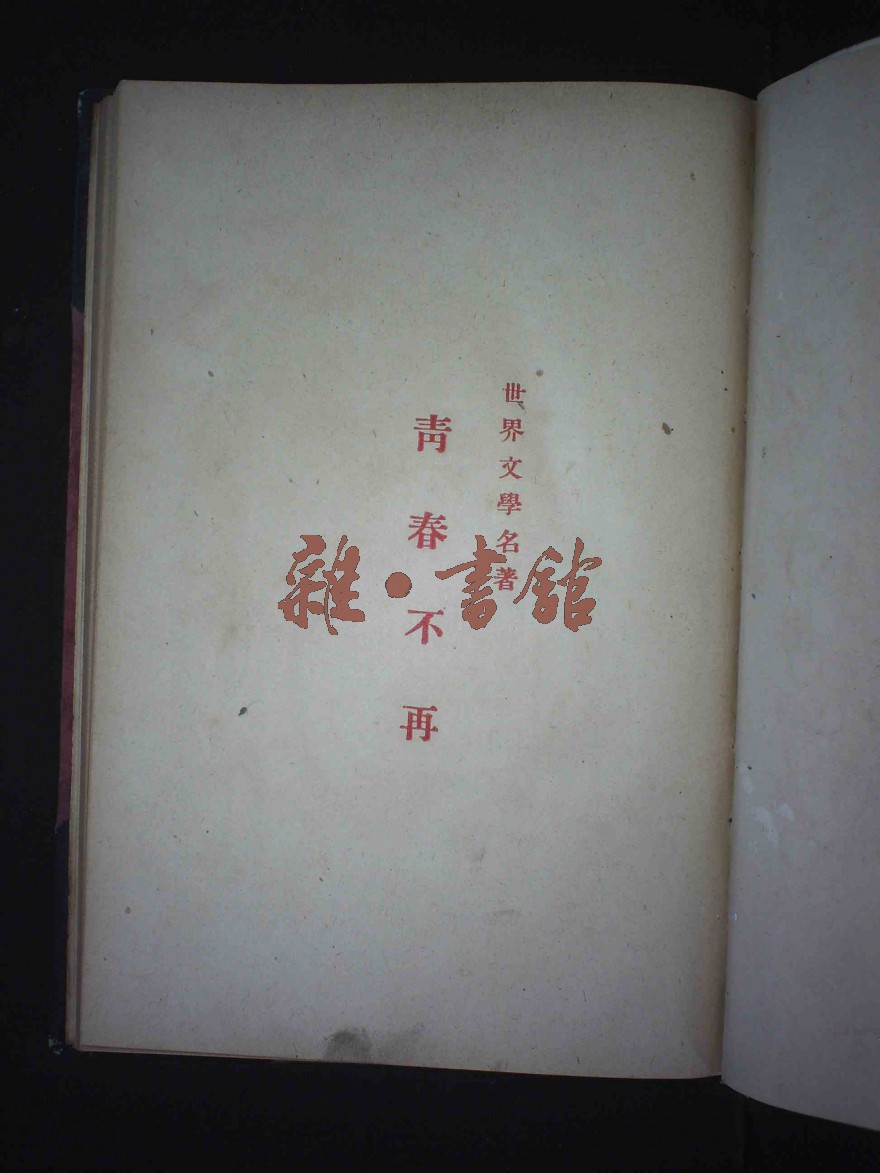 世界文學名著
青春不再
雜·書館